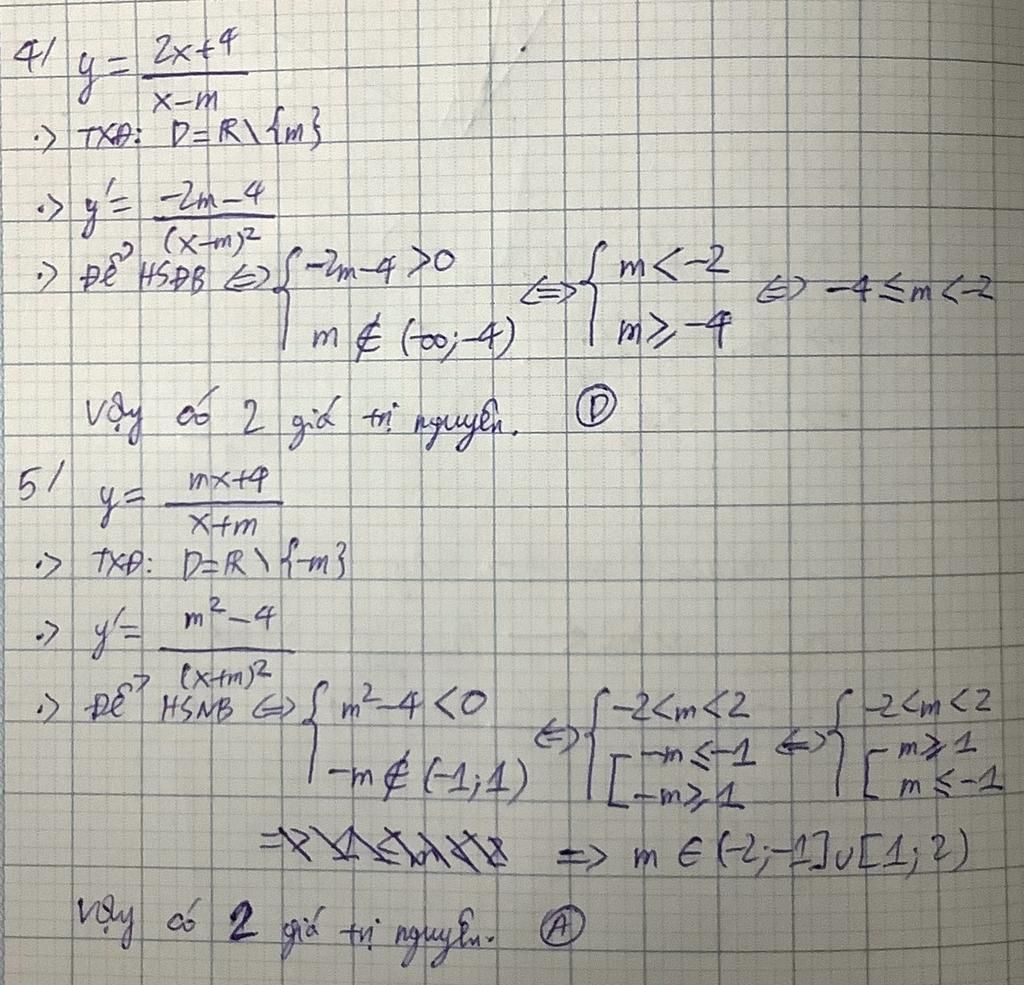 4/ y = (2x+4)/(x-m)
·> TXĐ: D=ℝ\{m}
·> y' = (-2m-4)/(x-m)²
·> Để HSĐB ⇔ { -2m-4>0 ; m ∉ (-∞;-4) ⇔ { m<-2 ; m ≥ -4 ⇔ -4 ≤ m < -2
Vậy có 2 giá trị nguyên. Ⓓ
5/ y = (mx+4)/(x+m)
·> TXĐ: D=ℝ\{-m}
·> y' = (m²-4)/(x+m)²
·> Để HSNB ⇔ { m²-4<0 ; -m ∉ (-1;1) ⇔ { -2<m<2 ; [ -m ≤ -1 ; -m ≥ 1 ⇔ { -2<m<2 ; [ m ≥ 1 ; m ≤ -1
⇒ m ∈ (-2;-1]∪[1;2)
Vậy có 2 giá trị nguyên. Ⓐ